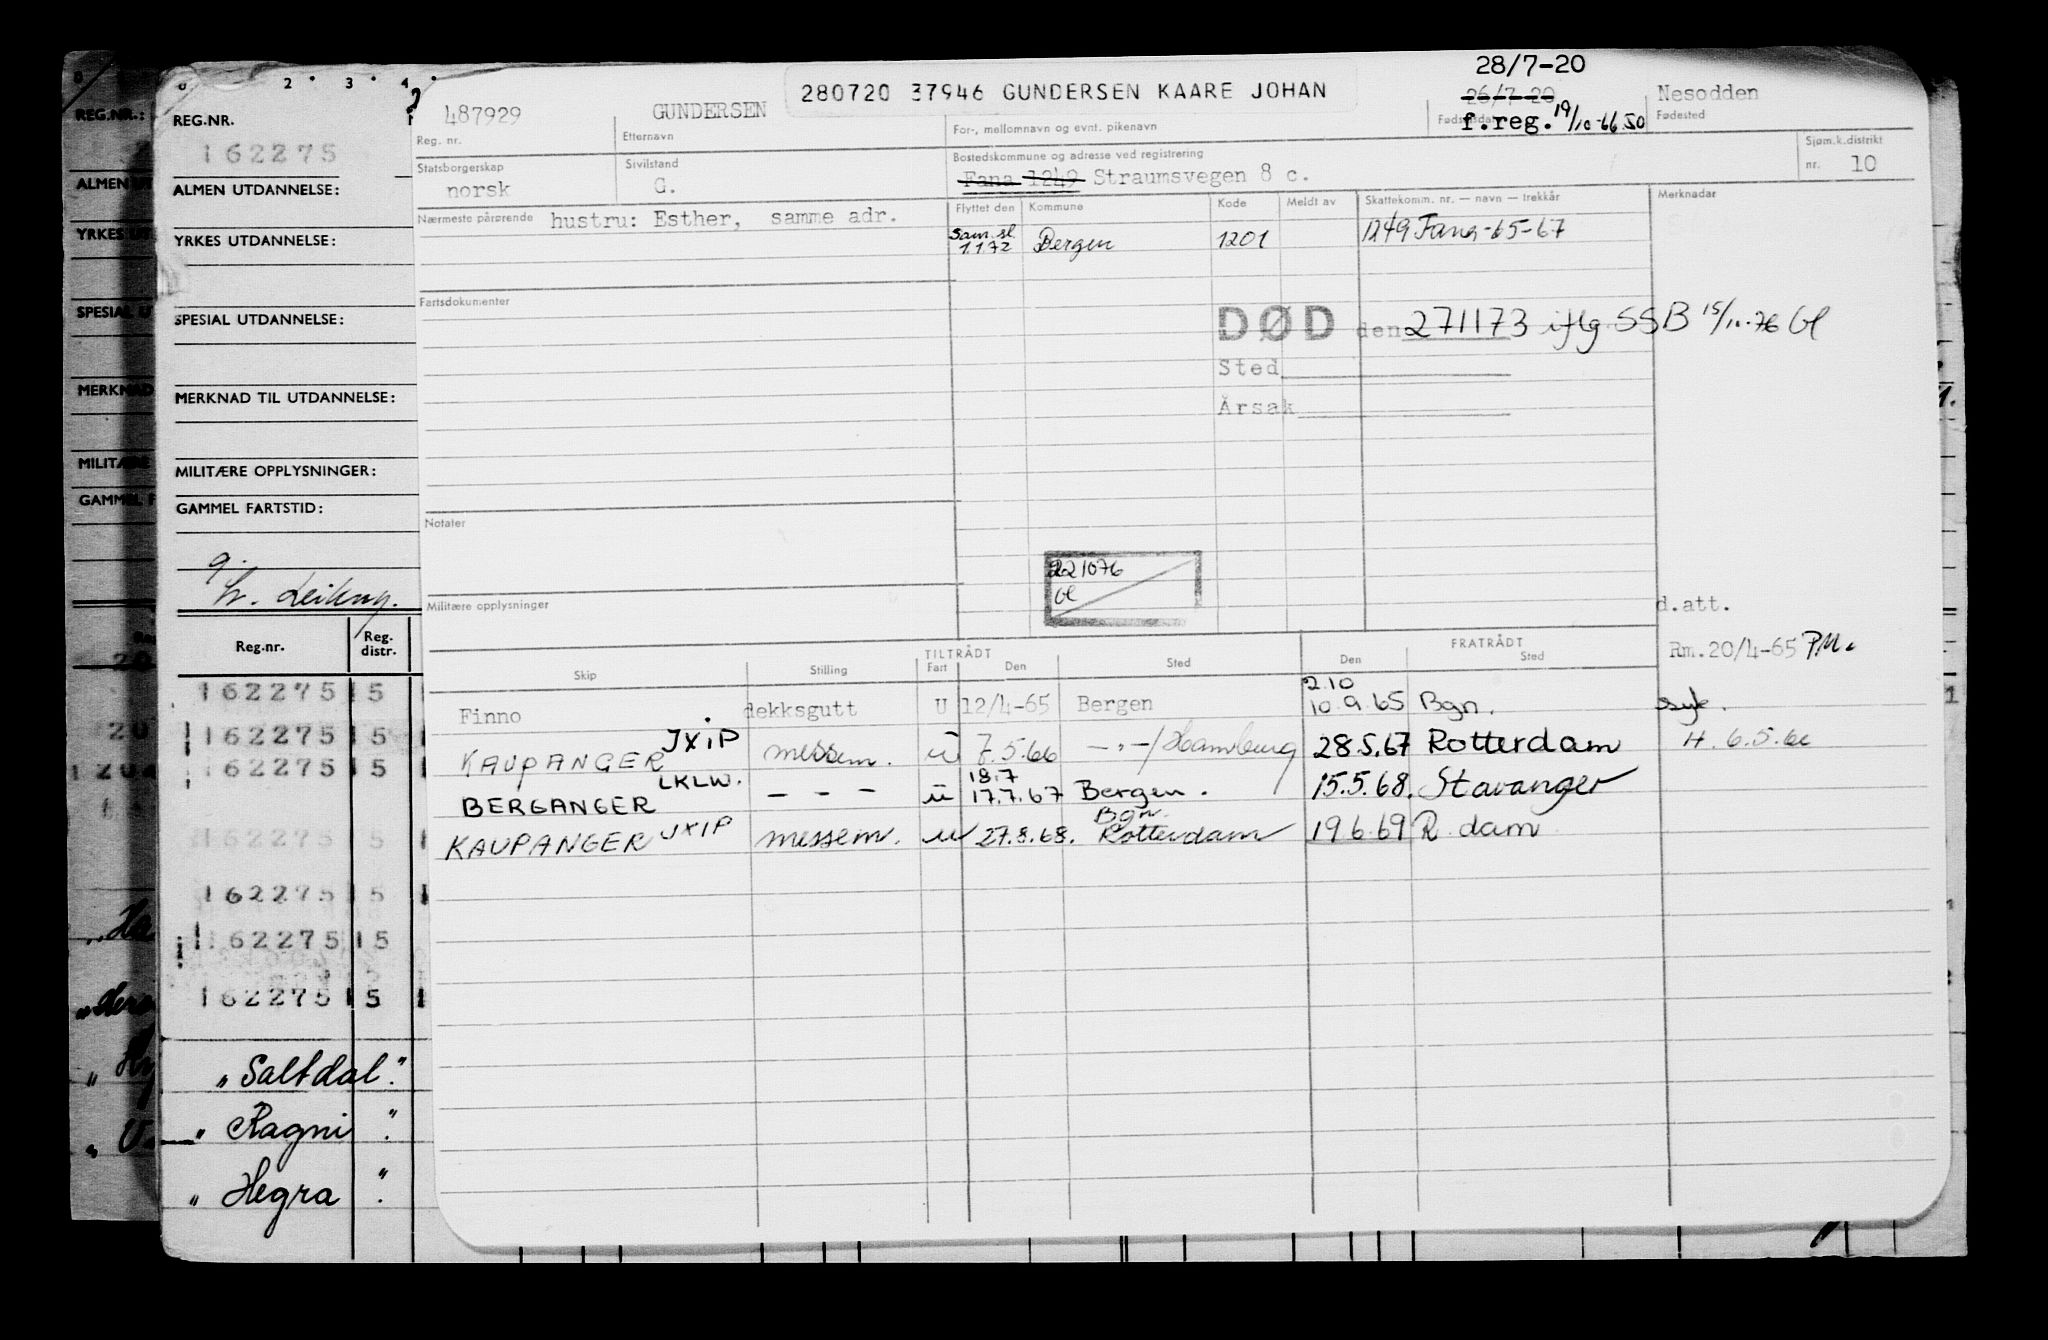 2 3 4
REG.NR.
162275
ALMEN UTDANNELSE:
YRKES UTDANNELSE:
SPESIAL UTDANNELSE:
MERKNAD TIL UTDANNELSE:
MILITÆRE OPPLYSNINGER:
GAMMEL FARTSTID:
Reg.nr. Reg. distr.
162275 5
162275 5
162275 5
162275 5
162275 5
162275 5
162275 5
„Saltdal."
„Ragni"
„Hegra"
REG.NR.:
487929 GUNDERSEN 280720 37946 GUNDERSEN KAARE JOHAN 28/7-20
26/7-20 Nesodden
Reg. nr. Etternavn For-, mellomnavn og evnt. pikenavn Fødselsdato Fødested
f.reg. 19/10-66 SO
Statsborgerskap Sivilstand Bostedskommune og adresse ved registrering Sjøm.k.distrikt
norsk G. Fana 1249 Straumsvegen 8 c. nr. 10
Nærmeste pårørende hustru: Esther, samme adr.
Flyttet den Kommune Kode Meldt av Skattekomm. nr. — navn — trekkår Merknadar
Sam.sl. 1.1.72 Bergen 1201 1249 Fana-65-67
Fartsdokumenter
DØD den 271173 iflg SSB 15/11-76 Gl
Sted
Årsak
Notater
221076
Gl
Militære opplysninger
d.att.
TILTRÅDT FRATRÅDT
Rm.20/4-65 PM.
Skip Stilling Fart Den Sted Den Sted
Finno dekksgutt U 12/4-65 Bergen 2.10 10.9.65 Bgn. Syk.
KAUPANGER JXIP messem. u 7.5.66 —"—/Hamburg 28.5.67 Rotterdam H. 6.5.66
BERGANGER LKLW. — — — u 18.7 17.7.67 Bergen. 15.5.68. Stavanger
KAUPANGER JXIP messem. u 27.8.68. Bgn. Rotterdam 19.6.69 R.dam